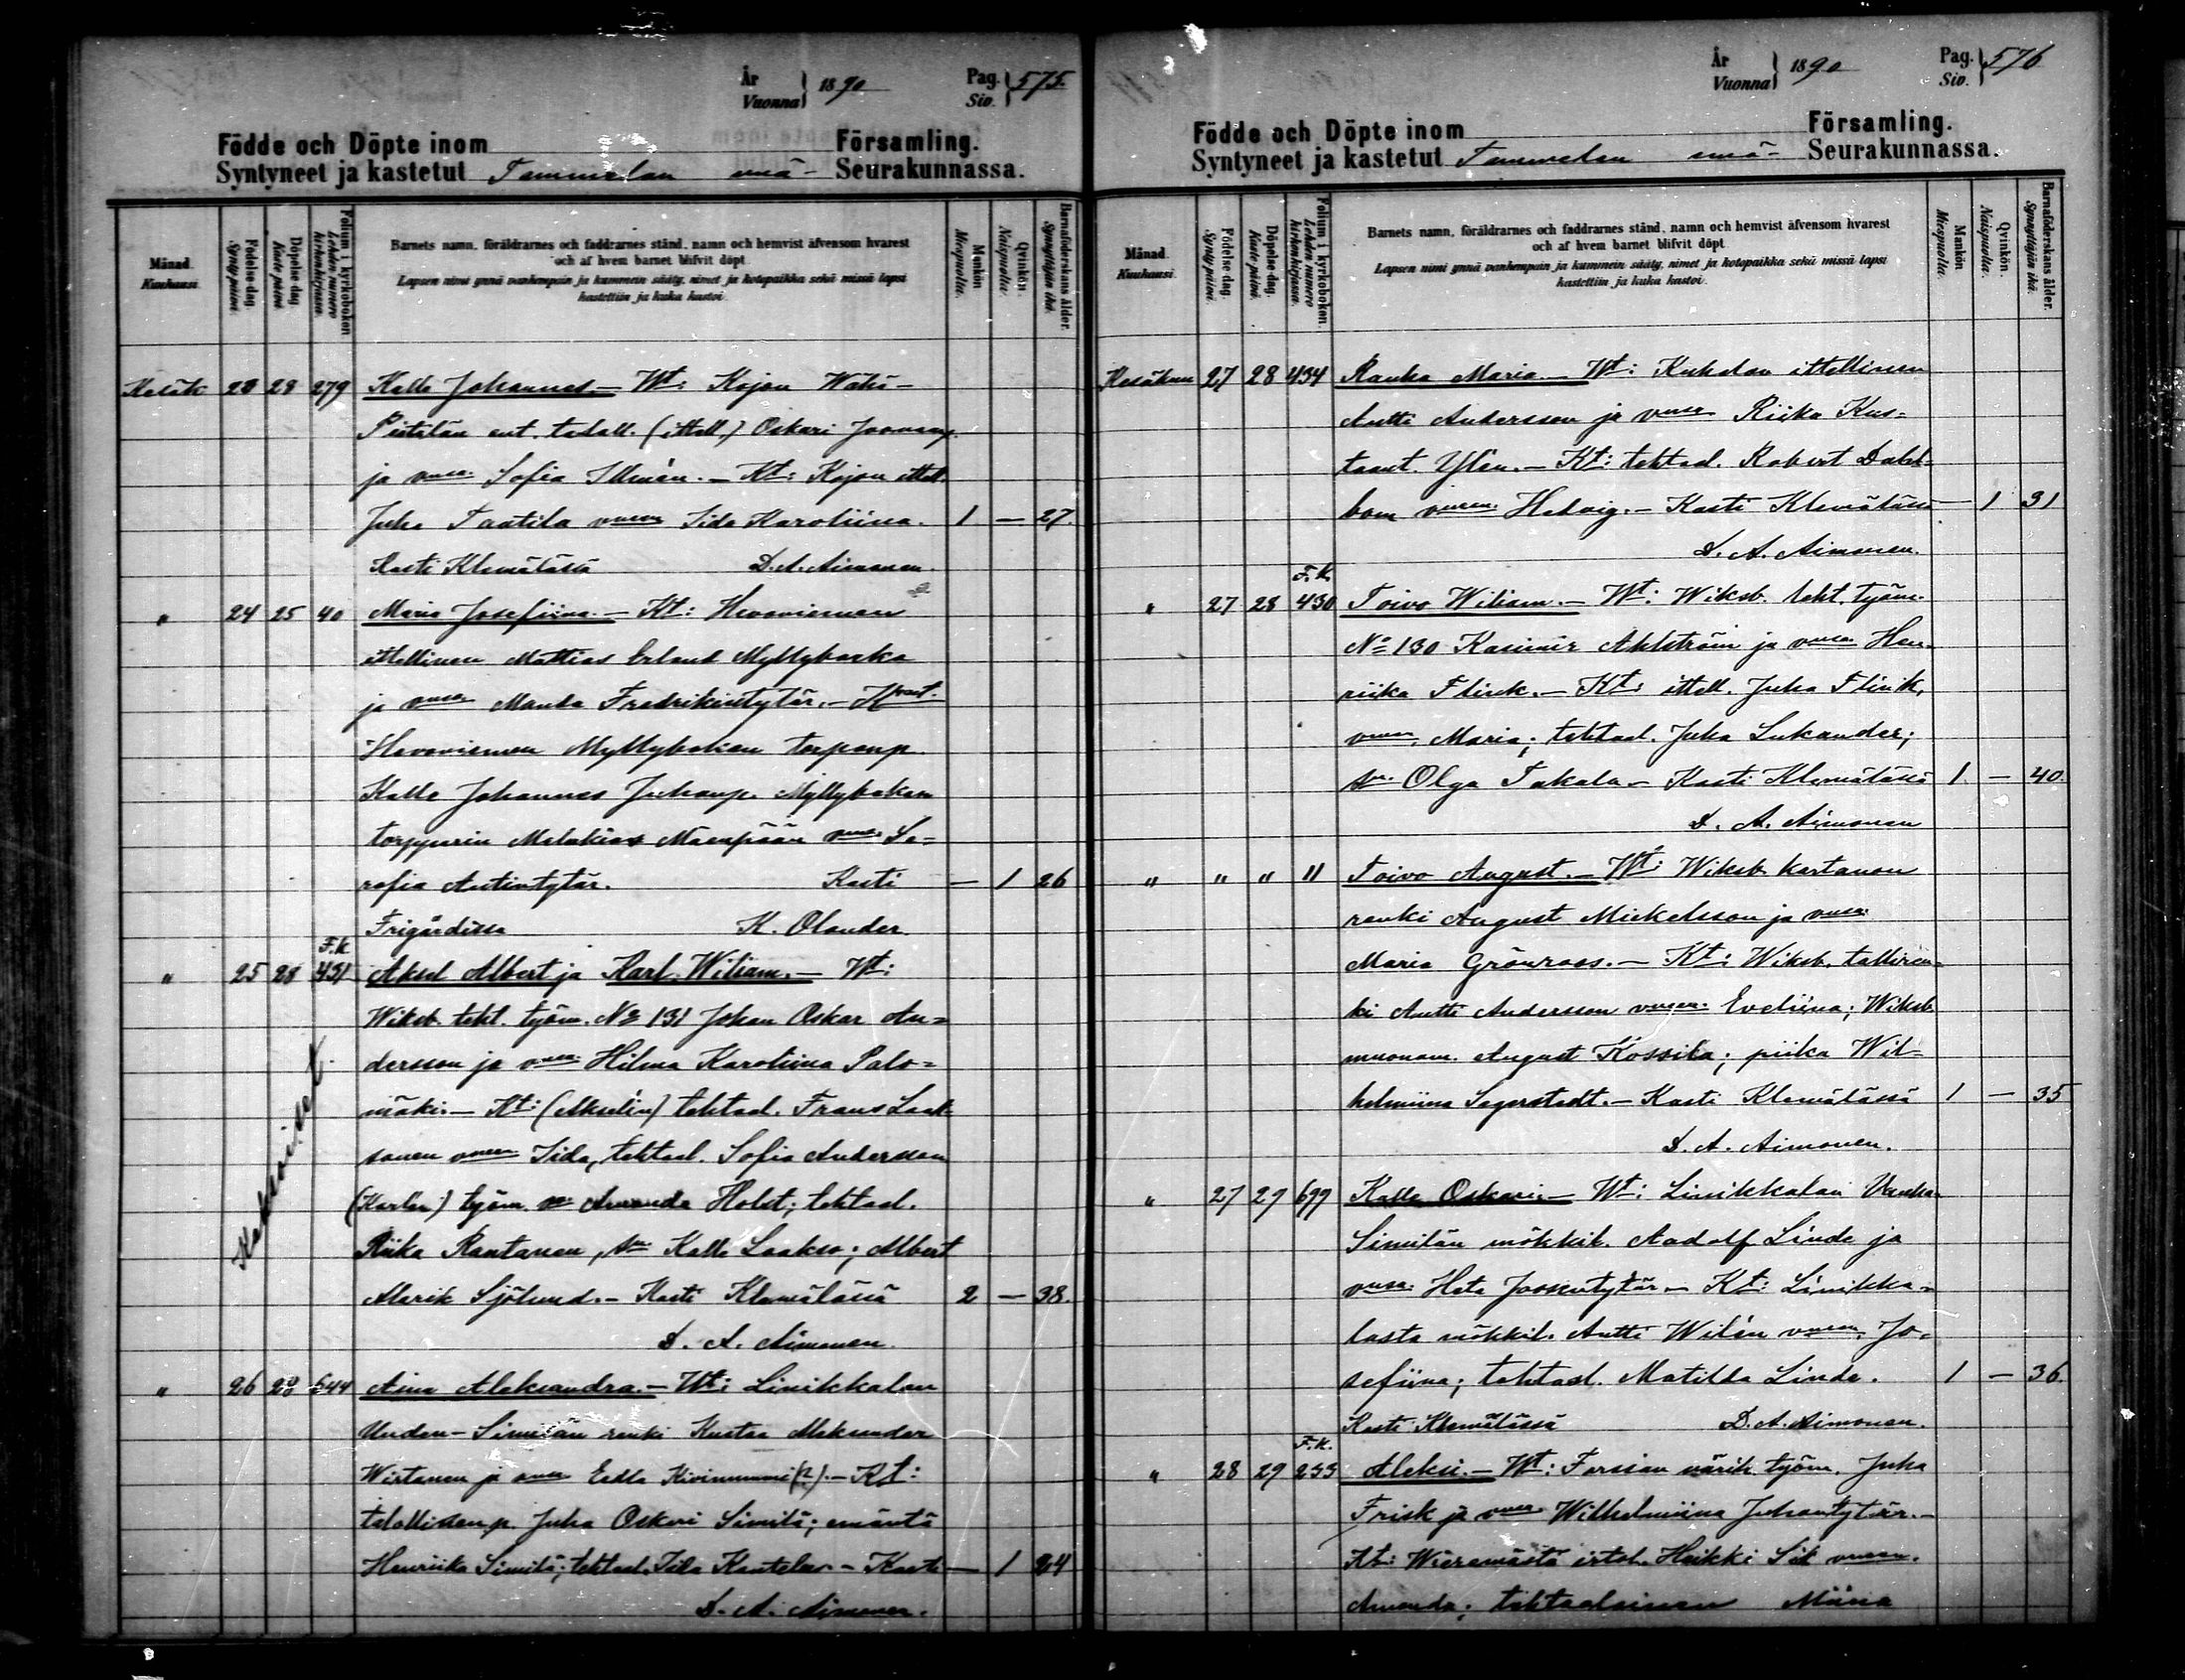 År
Vuonna } 1890
Pag.
Siv. } 575.
Födde och Döpte inom
Församling.
Syntyneet ja kastetut Tammelan emä- Seurakunnassa.
Månad. Kuukausi.
Födelse-dag. Synty päivä.
Döpelse-dag. Kaste päivä.
Folium i kyrkoboken. Lehden numero kirkonkirjassa.
Barnets namn, föräldrarnes och faddrarnes stånd, namn och hemvist äfvensom hvarest
och af hvem barnet blifvit döpt.
Lapsen nimi ynnä vanhempain ja kummein sääty, nimet ja kotopaikka sekä missä lapsi
kastettiin ja kuka kastoi.
Mankön. Miespuolia.
Qvinkön. Naispuolia.
Barnaföderskans ålder. Synnyttäjän ikä.
Kesäk 23 28 279 Kalle Johannes.— Wt: Kojon Wähä-
Pietilän ent. talall. (ittell.) Oskari Joonanp.
ja vmsa Sofia Illmén.— Kt: Kojon ittell.
Juha Taatila vmsa Iida Karoliina. 1 — 27.
Kasti Klemälässä D. A. Aimonen.
" 24 25 40 Maria Josefiina.— Kt: Hevoniemen
ittellinen Mattias Erland Myllyharka
ja vmsa Manda Fredrikintytär.—
Hevoniemen Myllyhakan torpanp.
Kalle Johannes Juhanp. Myllyhakan
torpparin Malakias Mäenpään vmsa Se-
rafia Antintytär. Kasti — 1 26
Frigårdissa K. Olander.
F.k.
" 25 28 431 Aksel Albert ja Karl Wiliam.— Wt:
Wiksb. teht. työm. No 131 Johan Oskar An-
dersson ja vmsa Hilma Karoliina Palo-
mäki.— Kt: (Akselin) tehtaal. Frans Laak-
sonen vmsa Iida, tehtaal. Sofia Andersson
(Karlin) työm. Amanda Holst; tehtaal.
Riika Rantanen, Kalle Laakso; Albert
Marik Sjölund.— Kasti Klemälässä 2 — 38.
Kaksoiset.
D. A. Aimonen.
" 26 28 644 Aina Aleksandra.— Wt: Linikkalan
Uuden-Simolan renki Kustaa Aleksander
Wirtanen ja vmsa Edla Kivinummi (?).— Kt:
talollisenp. Juha Oskari Similä; emäntä
Henriika Similä; tehtaal. Iida Kantelus — Kasti — 1 24
D. A. Aimonen.
År
Vuonna } 1890
Pag.
Siv. } 576
Födde och Döpte inom
Församling.
Syntyneet ja kastetut Tammelan emä- Seurakunnassa.
Månad. Kuukausi.
Födelse-dag. Synty päivä.
Döpelse-dag. Kaste päivä.
Folium i kyrkoboken. Lehden numero kirkonkirjassa.
Barnets namn, föräldrarnes och faddrarnes stånd, namn och hemvist äfvensom hvarest
och af hvem barnet blifvit döpt.
Lapsen nimi ynnä vanhempain ja kummein sääty, nimet ja kotopaikka sekä missä lapsi
kastettiin ja kuka kastoi.
Mankön. Miespuolia.
Qvinkön. Naispuolia.
Barnaföderskans ålder. Synnyttäjän ikä.
Kesäkuu 27 28 434 Rauha Maria.— Wt: Kuhalan ittellinen
Antti Andersson ja vmsa Riika Kus-
taant. Ylén.— Kt: tehtaal. Robert Dahl-
bom vmsa Helvig.— Kasti Klemälässä — 1 31
D. A. Aimonen.
F.k.
" 27 28 430 Toivo Wiliam.— Wt: Wiksb. teht. työm.
No 130 Kasimir Ahlström ja vmsa Hen-
riika Flink.— Kt: ittell. Juha Flink,
vmsa Maria; tehtaal. Juha Lukander;
Olga Takala.— Kasti Klemälässä 1. — 40.
D. A. Aimonen
" " " " Toivo August.— Wt: Wiksb. kartanon
renki August Mickelsson ja vmsa
Maria Grönroos.— Kt: Wiksb. talliren-
ki Antti Andersson vmsa Eveliina; Wiksb.
muonam. August Kossila; piika Wil-
helmiina Segerstedt.— Kasti Klemälässä 1 — 35
D. A. Aimonen.
" 27 29 699 Kalle Oskari.— Wt: Linikkalan Vanha-
Similän mökkil. Aadolf Linde ja
vmsa Heta Joosentytär— Kt: Linikka-
lasta mökkil. Antti Wilén vmsa Jo-
sefiina; tehtaal. Matilda Linde. 1 — 36.
Kasti Klemälässä D. A. Aimonen.
F.k.
" 28 29 255 Aleksi.— Wt: Forssan värik. työm. Juha
Frisk ja vmsa Wilhelmiina Juhantytär.—
Kt: Wieremästä irtol. Heikki Sik vmsa
Amanda; tehtaalainen Miina